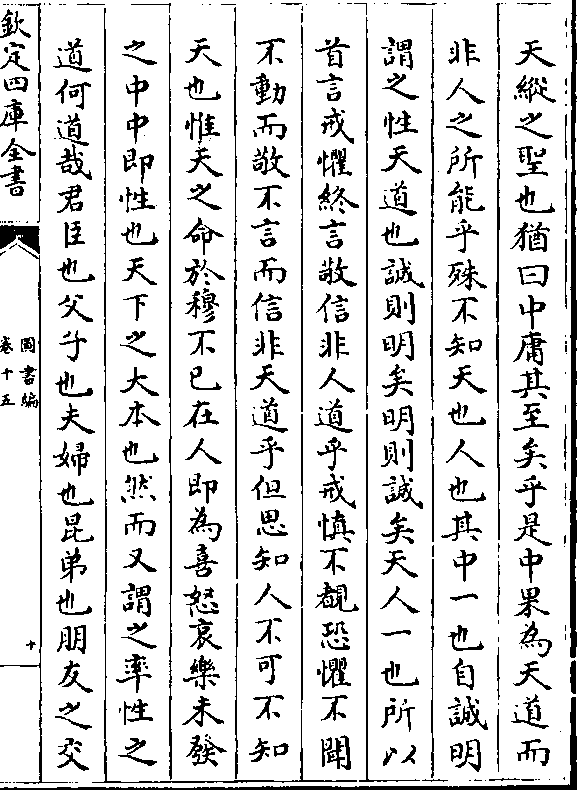 天縱之聖也猶曰中庸其至矣乎是中果為天道而
非人之所能乎殊不知天也人也其中一也自誠明
謂之性天道也誠則明矣明則誠矣天人一也所以
首言戒懼終言敬信非人道乎戒慎不覩恐懼不聞
不動而敬不言而信非天道乎但思知人不可不知
天也惟天之命於穆不已在人即為喜怒哀樂未發
之中中即性也天下之大本也然而又謂之率性之
道何道哉君臣也父子也夫婦也昆弟也朋友之交
欽定四庫全書
圖書編
卷十五
十